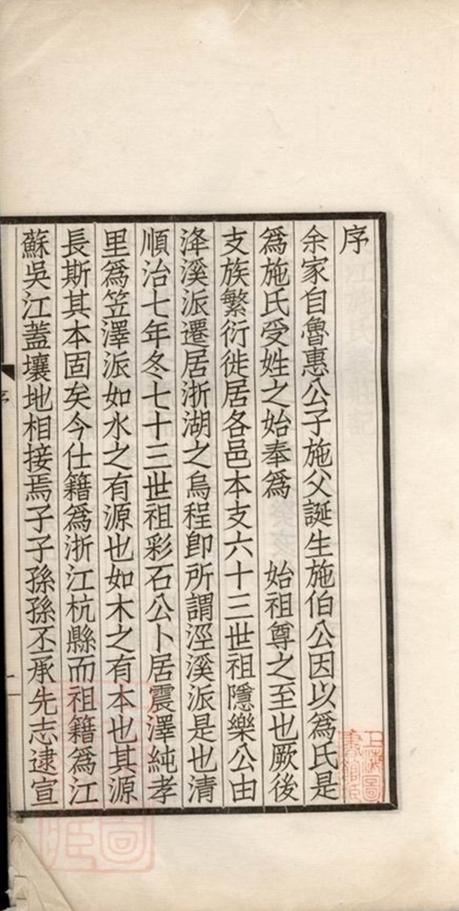 序
余家自魯惠公子施父誕生施伯公因以爲氏是
爲施氏受姓之始奉爲　　始祖尊之至也厥後
支族繁衍徙居各邑本支六十三世祖隱樂公由
洚溪派遷居浙湖之烏程卽所謂涇溪派是也清
順治七年冬七十三世祖彩石公卜居震澤純孝
里爲笠澤派如水之有源也如木之有本也其源
長斯其本固矣今仕籍爲浙江杭縣而祖籍爲江
蘇吳江蓋壤地相接焉子子孫孫丕承先志逮宣
序
一